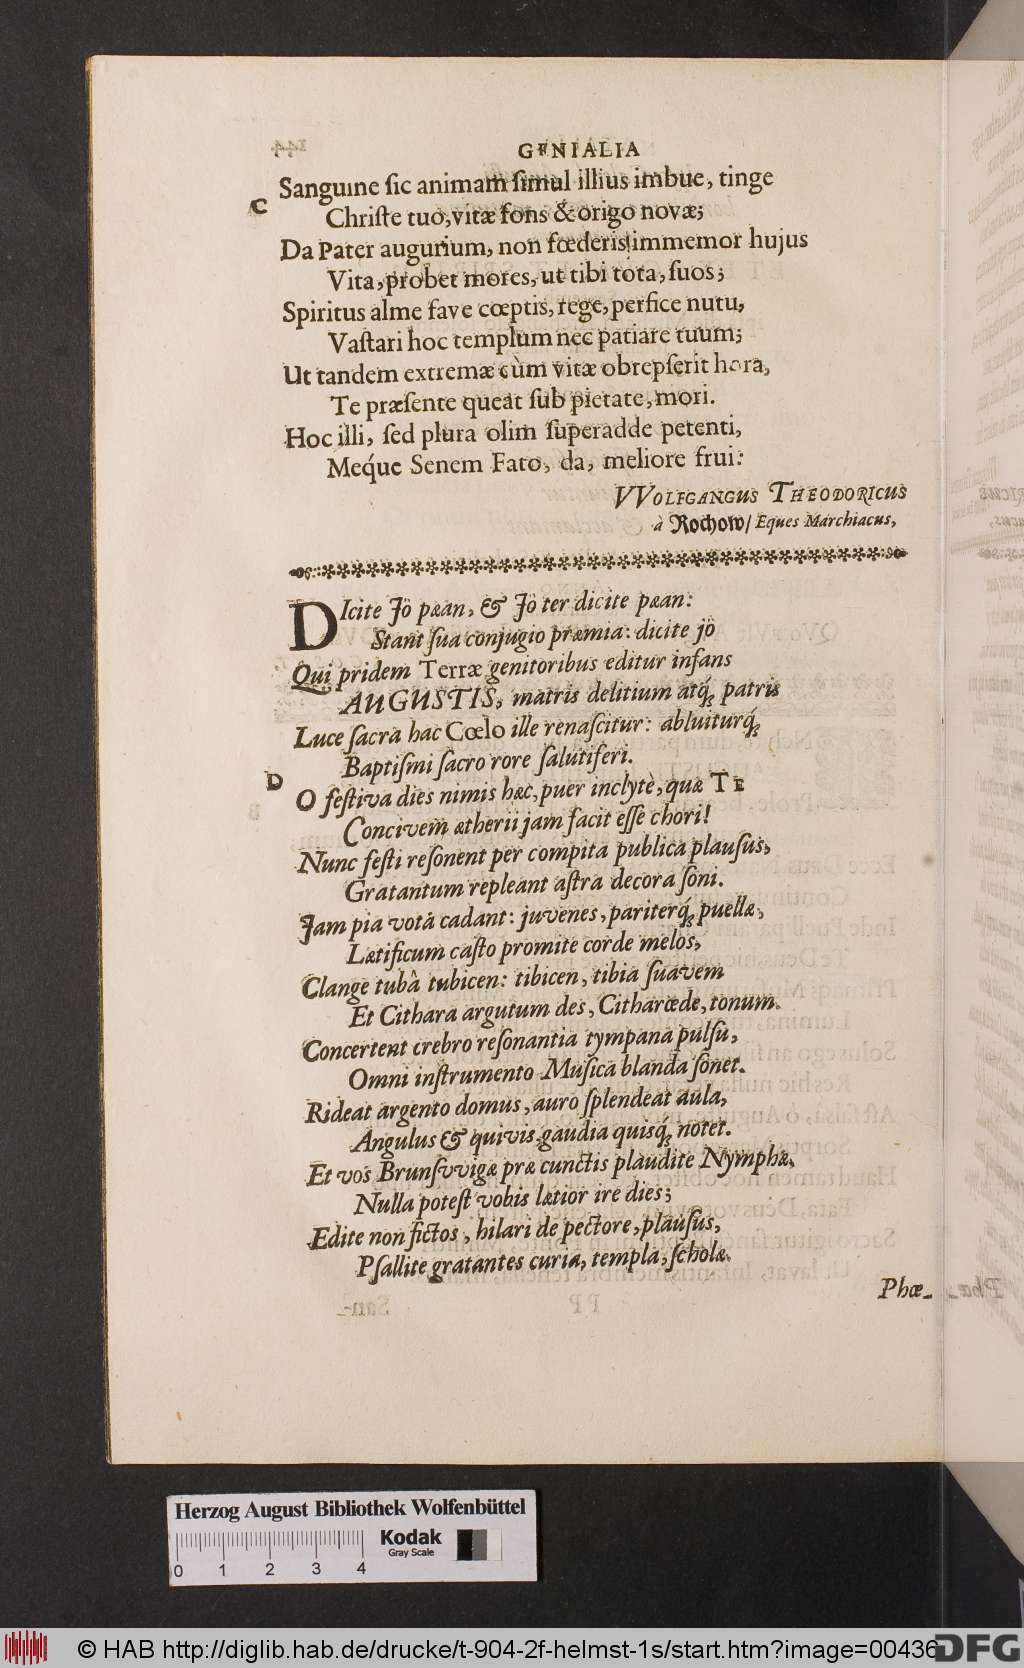 GENIALIA
Sanguine ſic animam ſimul illius imbue, tinge
C
Chriſte tuo, vitæ fons & origo novæ;
Da Pater augurium, non fœderis immemor hujus
Vita, probet mores, ut tibi tota, ſuos;
Spiritus alme fave cœptis, rege, perfice nutu,
Vaſtari hoc templum nec patiare tuum;
Ut tandem extremæ cùm vitæ obrepſerit hora,
Te præſente queat ſub pietate, mori.
Hoc illi, ſed plura olim ſuperadde petenti,
Meq́ue Senem Fato, da, meliore frui.
VVOLFGANGUS THEODORICUS
à Rochow/ Eques Marchiacus,
DIcite Jö pæan, & Jö ter dicite pæan:
Stant ſua conjugio præmia: dicite jö
Qui pridem Terræ genitoribus editur infans
AUGUSTIS, matris delitium atq́; patris
Luce ſacra hac Cœlo ille renaſcitur: abluiturq́;
Baptiſmi ſacro rore ſalutiferi.
D
O feſtiva dies nimis hæc, puer inclytè, quæ TE
Concivem ætherii jam facit eſſe chori!
Nunc feſti reſonent per compita publica plauſus,
Gratantum repleant aſtra decora ſoni.
Jam pia vota cadant: juvenes, pariterq́; puellæ,
Lætificum caſto promite corde melos,
Clange tubâ tubicen: tibicen, tibia ſuavem
Et Cithara argutum des, Citharœde, tonum.
Concertent crebro reſonantia tympana pulſu,
Omni inſtrumento Muſica blanda ſonet.
Rideat argento domus, auro ſplendeat aula,
Angulus & quivis gaudia quisq́; notet.
Et vos Brunſvvigæ præ cunctis plaudite Nymphæ,
Nulla poteſt vobis lætior ire dies;
Edite non fictos, hilari de pectore, plauſus,
Pſallite gratantes curia, templa, ſcholæ.
Phœ-
Herzog August Bibliothek Wolfenbüttel
Kodak
Gray Scale
0 1 2 3 4
© HAB http://diglib.hab.de/drucke/t-904-2f-helmst-1s/start.htm?image=00436
DFG